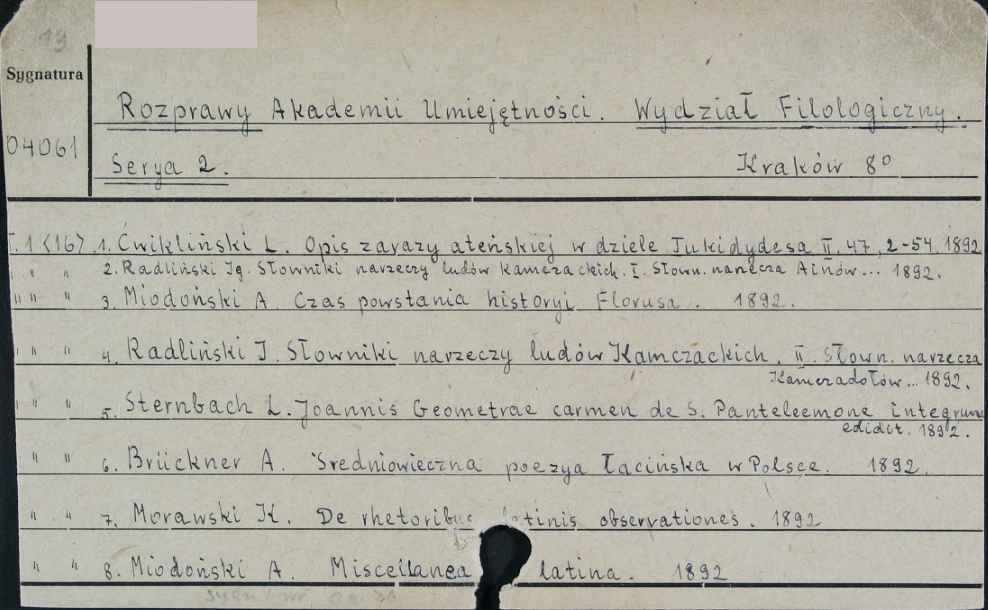 19
Sygnatura
04061
Rozprawy Akademii Umiejętności. Wydział Filologiczny.
Serya 2. Kraków 8°
T. 1 <16>. 1. Ćwikliński L. Opis zarazy ateńskiej w dziele Tukidydesa II. 47, 2-54. 1892
" " " 2. Radliński Ig. Słowniki narzeczy ludów kamczackich. I. Słown. narzecza Ainów... 1892.
" " " 3. Miodoński A. Czas powstania historyi Florusa. 1892.
" " " 4. Radliński I. Słowniki narzeczy ludów Kamczackich. II. Słown. narzecza
Kamczadołów... 1892.
" " " 5. Sternbach L. Joannis Geometrae carmen de S. Panteleemone integrum
edidit. 1892.
" " 6. Brückner A. Średniowieczna poezya łacińska w Polsce. 1892.
" " 7. Morawski K. De rhetoribus latinis observationes. 1892
" " 8. Miodoński A. Miscellanea latina. 1892